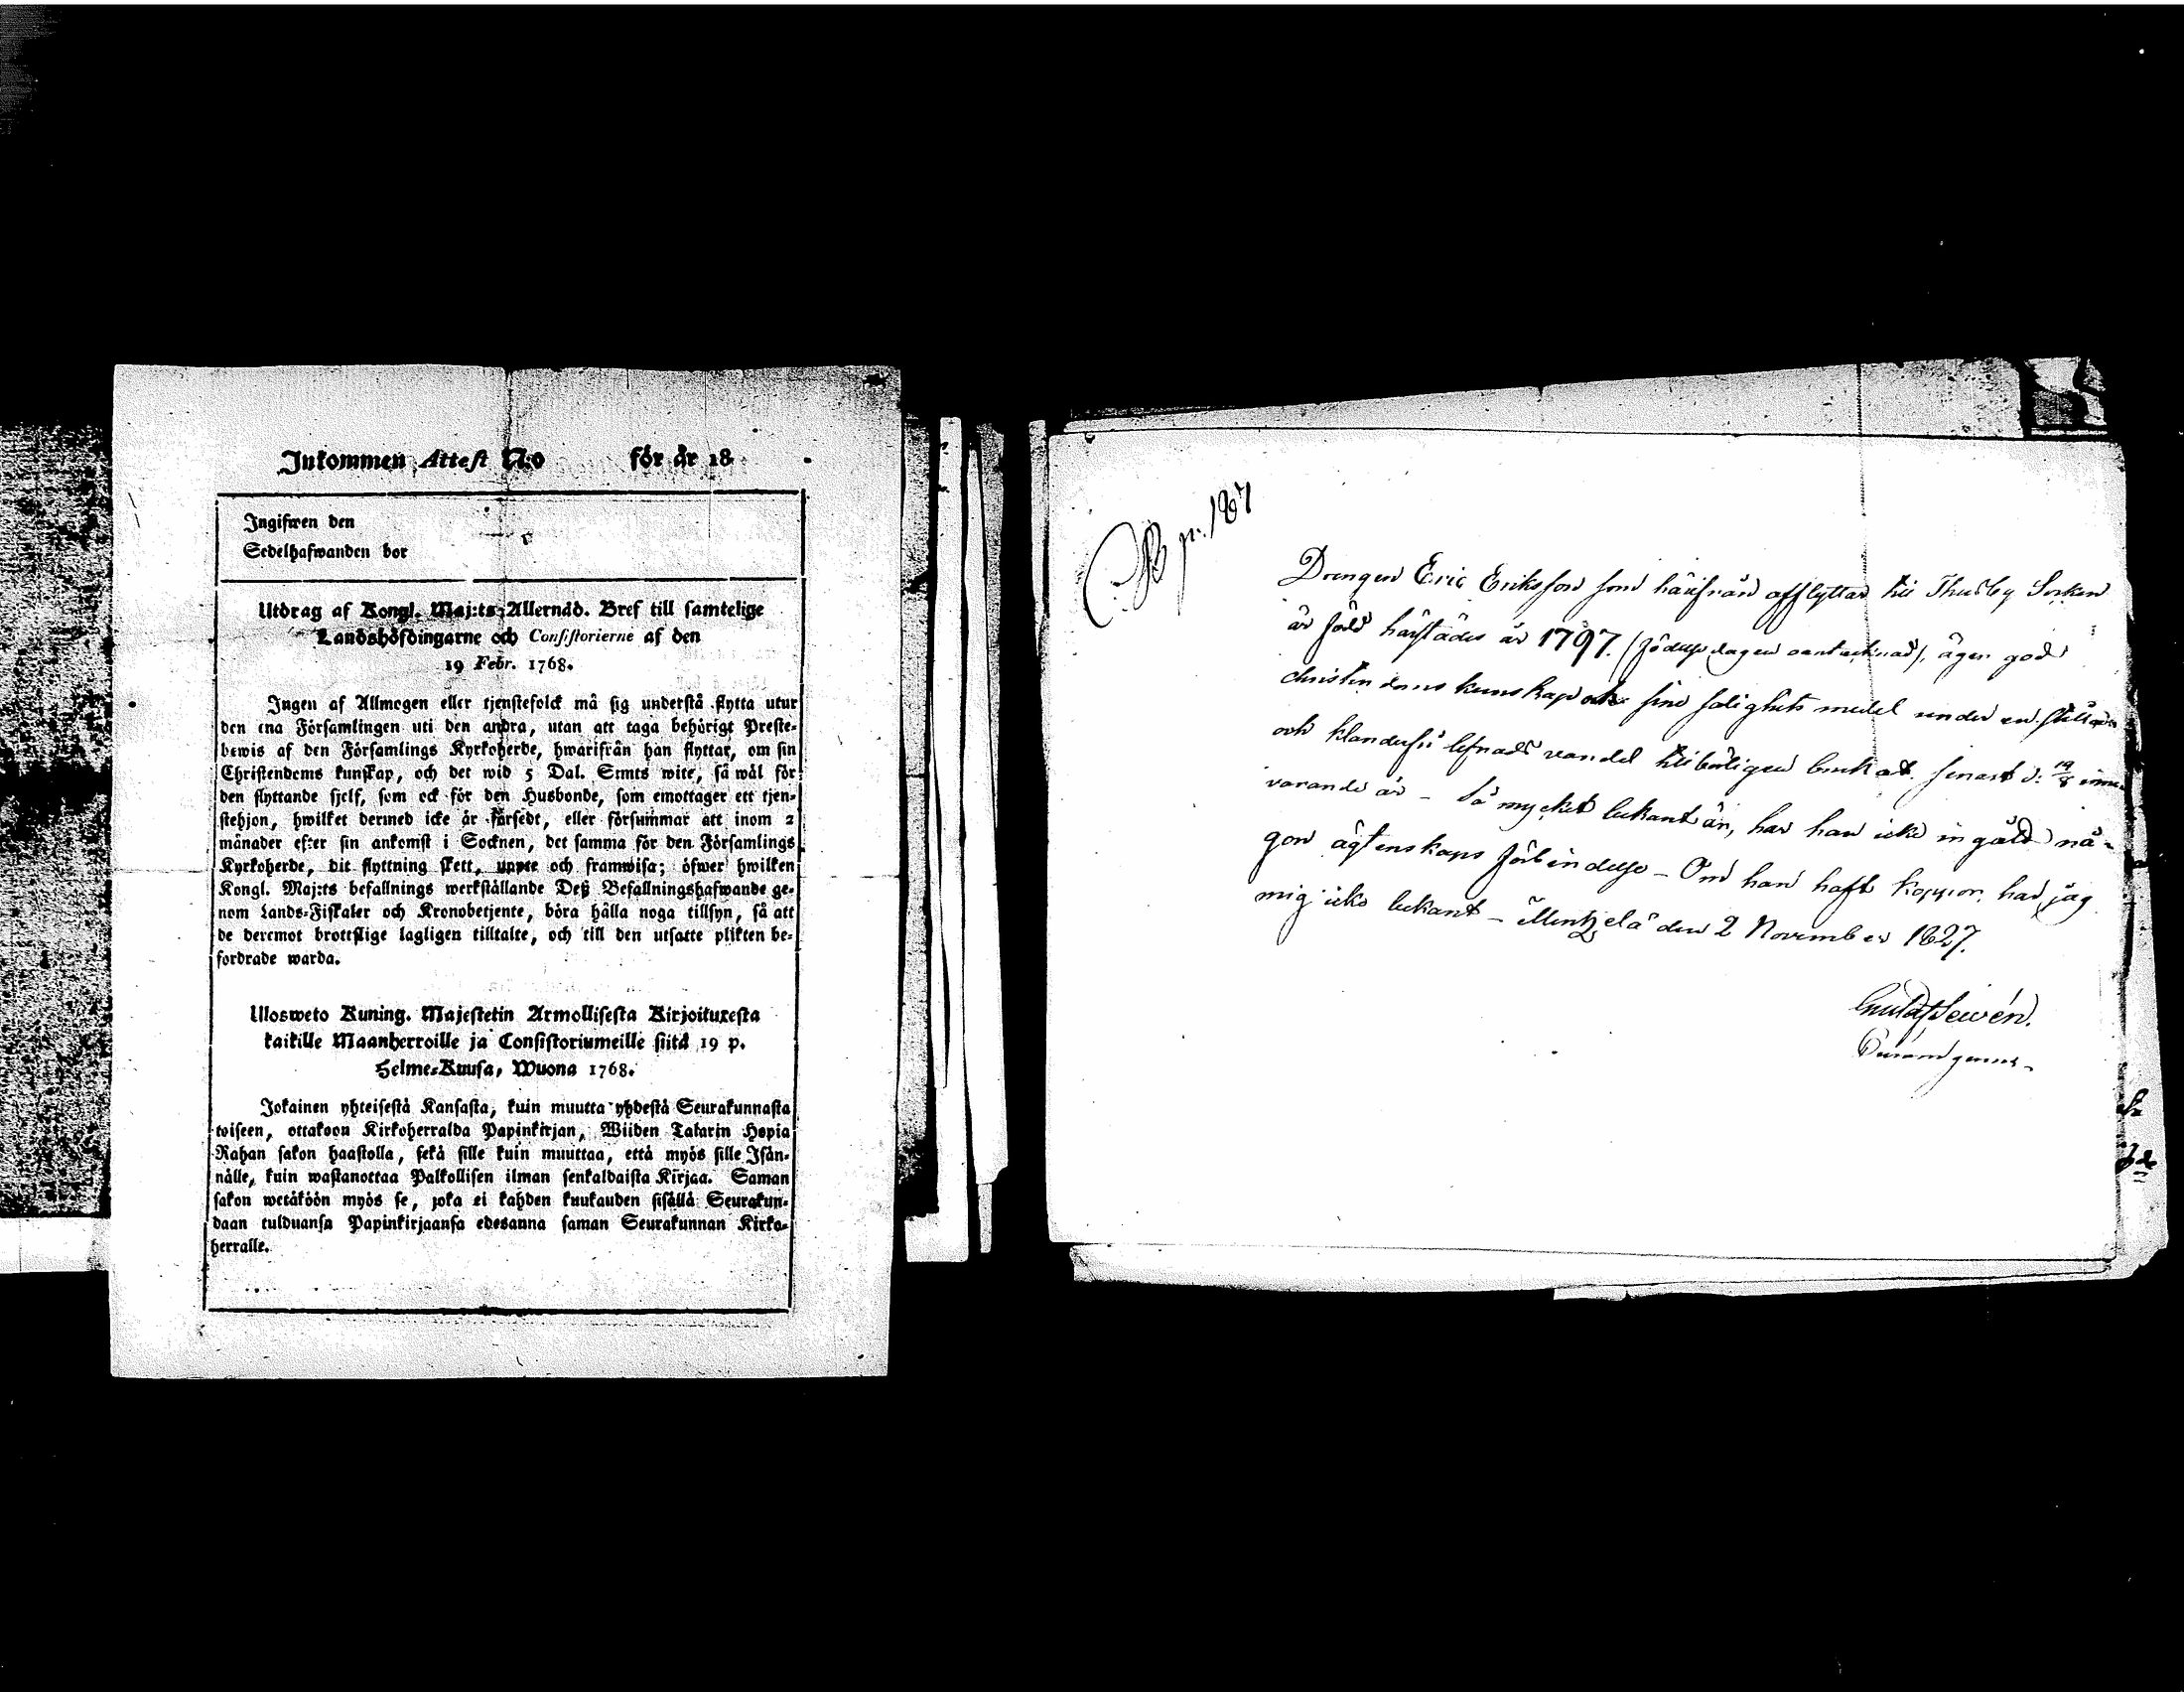 Inkommen Attest N:o för år 18
Ingifwen den
Sedelhafwanden bor
Utdrag af Kongl. Maj:ts Allernåd. Bref till samtelige
Landshöfdingarne och Consistorierne af den
19 Febr. 1768.
Ingen af Allmogen eller tjenstefolck må sig understå flytta utur
den ena Församlingen uti den andra, utan att taga behörigt Preste-
bewis af den Församlings Kyrkoherde, hwarifrån han flyttar, om sin
Christendoms kunskap, och det wid 5 Dal. S:mts wite, så wäl för
den flyttande sjelf, som ock för den Husbonde, som emottager ett tjen-
stehjon, hwilket dermed icke är försedt, eller försummar att inom 2
månader efter sin ankomst i Socknen, det samma för den Församlings
Kyrkoherde, dit flyttning skett, uppte och framwisa; öfwer hwilken
Kongl. Maj:ts befallnings werkställande Deß Befallningshafwande ge-
nom Lands-Fiskaler och Kronobetjente, böra hålla noga tillsyn, så att
de deremot brottslige lagligen tilltalte, och till den utsatte plikten be-
fordrade warda.
Ulosweto Kuning. Majestetin Armollisesta Kirjoituxesta
kaikille Maanherroille ja Consistoriumeille siitä 19 p.
Helme-Kuusa, Wuona 1768.
Jokainen yhteisestä Kansasta, kuin muutta yhdestä Seurakunnasta
toiseen, ottakoon Kirkoherralda Papinkirjan, Wiiden Talarin Hopia
Rahan sakon haastolla, sekä sille kuin muuttaa, että myös sille Isän-
nälle, kuin wastanottaa Palkollisen ilman senkaldaista Kirjaa. Saman
sakon wetäköön myös se, joka ei kahden kuukauden sisällä Seurakun-
daan tulduansa Papinkirjaansa edesanna saman Seurakunnan Kirko-
herralle.
p. 187
Drengen Eric Eriksson som härifrån afflyttar till Thusby Socken
är född härstädes år 1797. (födelsedagen oantecknad), äger god
christendoms kunskap och sine salighets medel under en
och klanderfri lefnads vandel tillbörligen brukat senast d: 19/8
varande år - Så mycket bekant är, har han icke ingådt nå-
gon ägtenskaps förbindelse - Om han haft koppor, har jag
mig icke bekant - Mentzelä den 2 November 1827.
Gustaf Lewén.